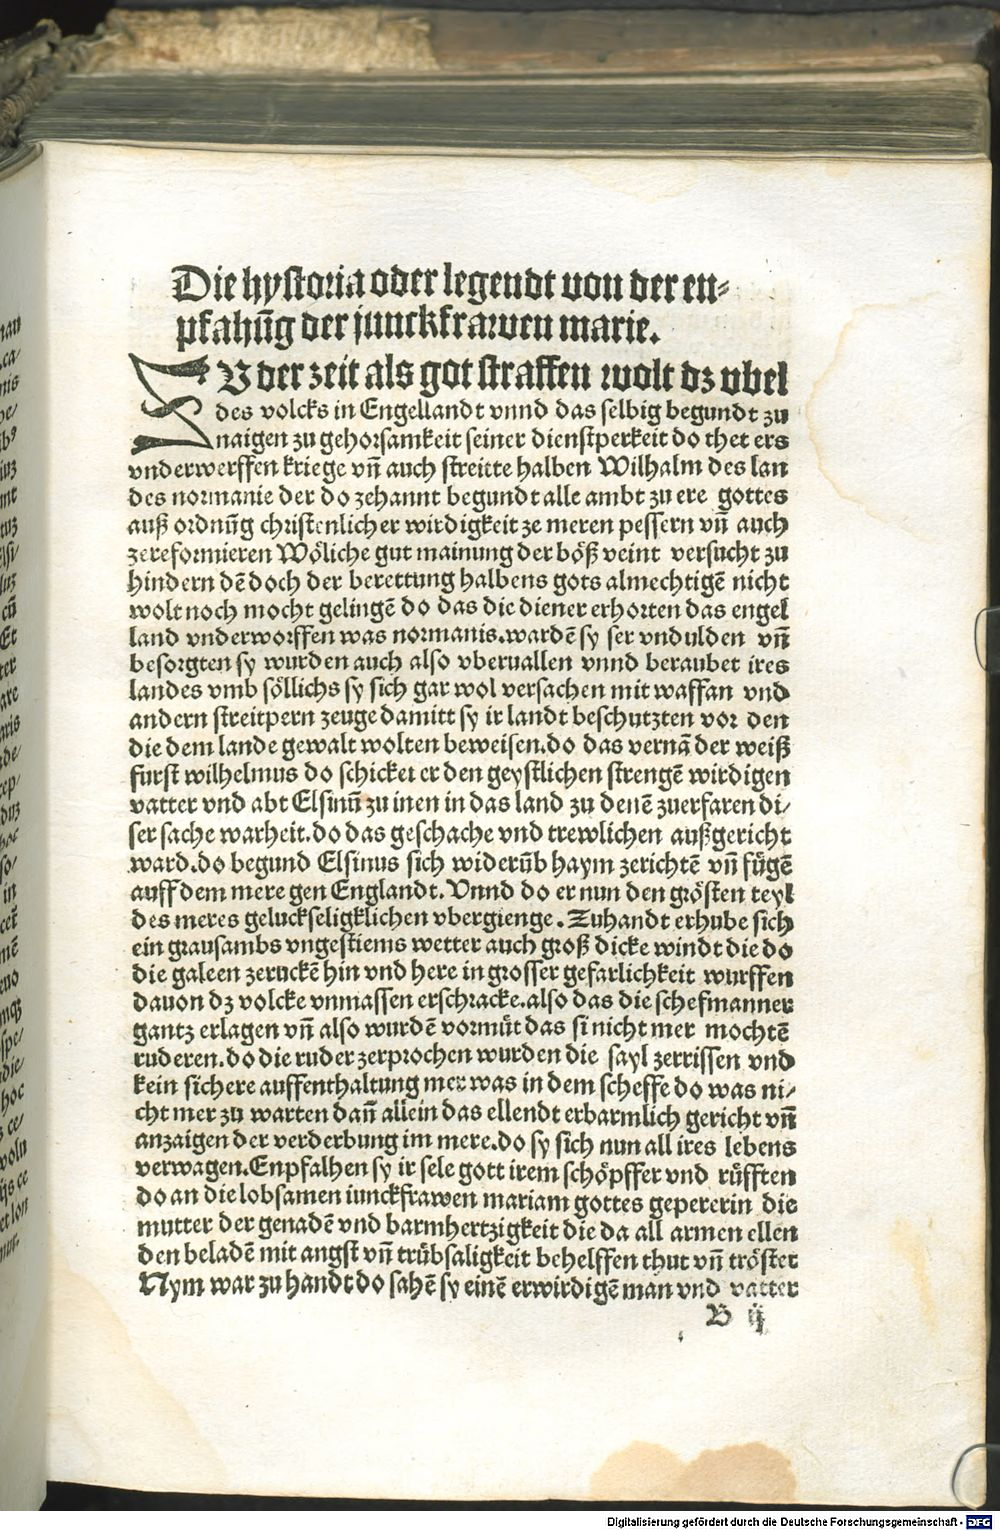 Die hystoria oder legendt von der en⸗
pfahūg der junckfrawen marie.
ZV der zeit als got straffen wolt dz vbel
des volcks in Engellandt vnnd das selbig begundt zu
naigen zu gehorsamkeit seiner dienstperkeit do thet ers
vnderwerffen kriege vn̄ auch streitte halben Wilhalm des lan
des normanie der do zehannt begundt alle ambt zu ere gottes
auß ordnūg christenlicher wirdigkeit ze meren pessern vn̄ auch
zereformieren Wöliche gut mainung der böß veint versucht zu
hindern dē doch der berettung halbens gots almechtigē nicht
wolt noch mocht gelingē do das die diener erhorten das engel
land vnderworffen was normanis. wardē sy ser vndulden vn̄
besorgten sy wurden auch also vberuallen vnnd beraubet ires
landes vmb söllichs sy sich gar wol versachen mit waffan vnd
andern streitpern zeuge damitt sy ir landt beschutzten vor den
die dem lande gewalt wolten beweisen. do das vernā der weiß
furst wilhelmus do schicket er den geystlichen strengē wirdigen
vatter vnd abt Elsinū zu inen in das land zu denē zuerfaren di⸗
ser sache warheit. do das geschache vnd trewlichen außgericht
ward. do begund Elsinus sich widerūb haym zerichtē vn̄ fügē
auff dem mere gen Englandt. Vnnd do er nun den grösten teyl
des meres geluckseligklichen vbergienge. Zuhandt erhube sich
ein grausambs vngestiems wetter auch groß dicke windt die do
die galeen zeruckē hin vnd here in grosser gefarlichkeit wurffen
dauon dz volcke vnmassen erschracke. also das die schefmanner
gantz erlagen vn̄ also wurdē vormüt das si nicht mer mochtē
ruderen. do die ruder zerprochen wurden die sayl zerrissen vnd
kein sichere auffenthaltung mer was in dem scheffe do was ni⸗
cht mer zu warten dan̄ allein das ellendt erbarmlich gericht vn̄
anzaigen der verderbung im mere. do sy sich nun all ires lebens
verwagen. Enpfalhen sy ir sele gott irem schöpffer vnd rüfften
do an die lobsamen iunckfrawen mariam gottes gepererin die
mutter der genadē vnd barmhertzigkeit die da all armen ellen
den beladē mit angst vn̄ trübsaligkeit behelffen thut vn̄ tröstet
Nym war zu handt do sahē sy einē erwirdigē man vnd vatter
B ij
Digitalisierung gefördert durch die Deutsche Forschungsgemeinschaft - DFG